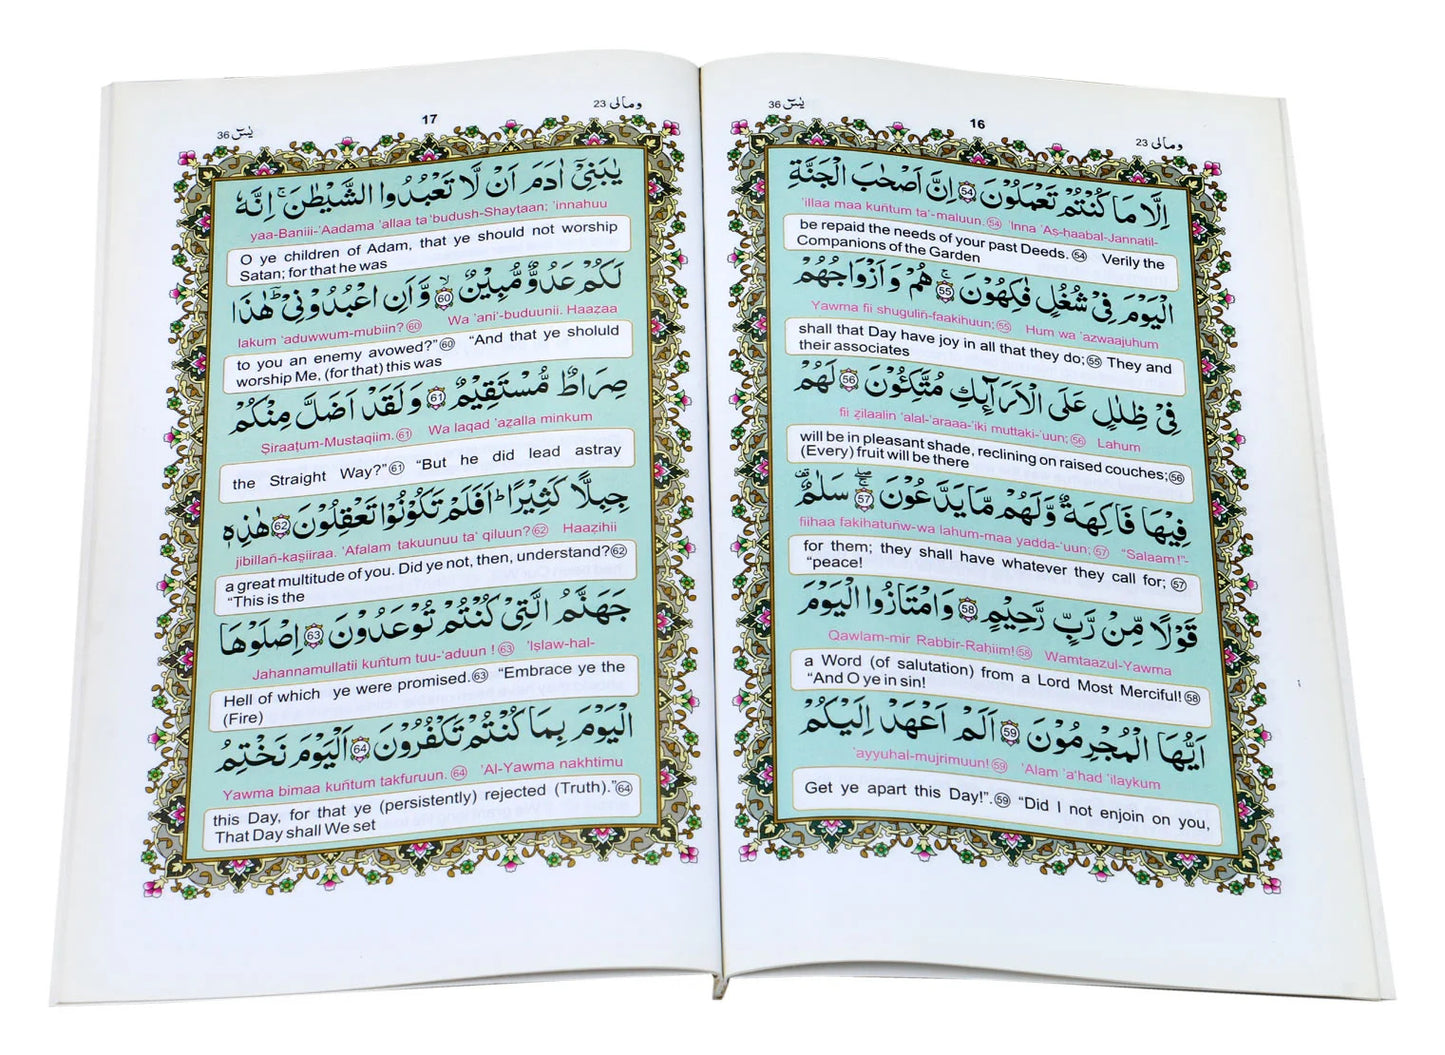 يٰسٓ 36
16
ومالی 23
اِلَّا مَا كُنْتُمْ تَعْمَلُوْنَ 54 اِنَّ اَصْحٰبَ الْجَنَّةِ
'illaa maa kuñtum ta'-maluun. 54 'Inna 'As-haabal-Jannatil-
be repaid the needs of your past Deeds. 54 Verily the
Companions of the Garden
الْيَوْمَ فِيْ شُغُلٍ فٰكِهُوْنَ 55 هُمْ وَاَزْوَاجُهُمْ
Yawma fii shuguliñ-faakihuun; 55 Hum wa 'azwaajuhum
shall that Day have joy in all that they do; 55 They and
their associates
فِيْ ظِلٰلٍ عَلَى الْاَرَآئِكِ مُتَّكِـُٔوْنَ 56 لَهُمْ
fii ẓilaalin 'alal-'araaa-'iki muttaki-'uun; 56 Lahum
will be in pleasant shade, reclining on raised couches; 56
(Every) fruit will be there
فِيْهَا فَاكِهَةٌ وَّلَهُمْ مَّا يَدَّعُوْنَ 57 سَلٰمٌ
fiihaa fakihatuñw-wa lahum-maa yadda-'uun; 57 “Salaam!”-
for them; they shall have whatever they call for; 57
“peace!
قَوْلًا مِّنْ رَّبٍّ رَّحِيْمٍ 58 وَامْتَازُوا الْيَوْمَ
Qawlam-mir Rabbir-Rahiim! 58 Wamtaazul-Yawma
a Word (of salutation) from a Lord Most Merciful! 58
“And O ye in sin!
اَيُّهَا الْمُجْرِمُوْنَ 59 اَلَمْ اَعْهَدْ اِلَيْكُمْ
'ayyuhal-mujrimuun! 59 'Alam 'a'had 'ilaykum
Get ye apart this Day!”. 59 “Did I not enjoin on you,
يٰسٓ 36
17
ومالی 23
يٰبَنِيْٓ اٰدَمَ اَنْ لَّا تَعْبُدُوا الشَّيْطٰنَ ۚ اِنَّهٗ
yaa-Baniii-'Aadama 'allaa ta'budush-Shaytaan; 'innahuu
O ye children of Adam, that ye should not worship
Satan; for that he was
لَكُمْ عَدُوٌّ مُّبِيْنٌ 60 وَّاَنِ اعْبُدُوْنِيْ ؕ هٰذَا
lakum 'aduwwum-mubiin? 60 Wa 'ani'-buduunii. Haaẓaa
to you an enemy avowed?” 60 “And that ye sholuld
worship Me, (for that) this was
صِرَاطٌ مُّسْتَقِيْمٌ 61 وَلَقَدْ اَضَلَّ مِنْكُمْ
Ṣiraaṭum-Mustaqiim. 61 Wa laqad 'aẓalla minkum
the Straight Way?” 61 “But he did lead astray
جِبِلًّا كَثِيْرًا ؕ اَفَلَمْ تَكُوْنُوْا تَعْقِلُوْنَ 62 هٰذِهٖ
jibillañ-kaṣiiraa. 'Afalam takuunuu ta' qiluun? 62 Haaẓihii
a great multitude of you. Did ye not, then, understand? 62
“This is the
جَهَنَّمُ الَّتِيْ كُنْتُمْ تُوْعَدُوْنَ 63 اِصْلَوْهَا
Jahannamullatii kuñtum tuu-'aduun ! 63 'Iṣlaw-hal-
Hell of which ye were promised. 63 “Embrace ye the
(Fire)
الْيَوْمَ بِمَا كُنْتُمْ تَكْفُرُوْنَ 64 اَلْيَوْمَ نَخْتِمُ
Yawma bimaa kuñtum takfuruun. 64 'Al-Yawma nakhtimu
this Day, for that ye (persistently) rejected (Truth).” 64
That Day shall We set